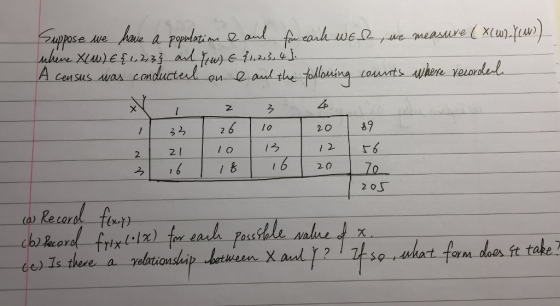 Suppose we have a population Ω and for each ω∈Ω, we measure (X(ω),Y(ω))
where X(ω) ∈ {1,2,3} and Y(ω) ∈ {1,2,3,4}.
A census was conducted on Ω and the following counts where recorded.
X Y 1 2 3 4
1 33 26 10 20 89
2 21 10 13 12 56
3 16 18 16 20 70
205
(a) Record f(x,y)
(b) Record fY|X(·|x) for each possible value of x.
(c) Is there a relationship between X and Y? If so, what form does it take?